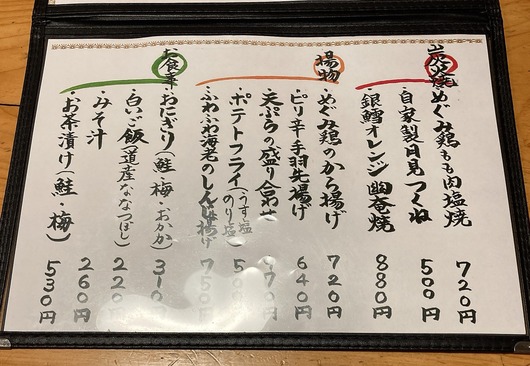 炭火焼
・めぐみ鶏もも肉塩焼 720円
・自家製月見つくね 500円
・銀鱈オレンジ幽奄焼 880円
揚物
・めぐみ鶏のから揚げ 720円
・ピリ辛手羽先揚げ 640円
・天ぷらの盛り合わせ
・ポテトフライ(うす塩 のり塩)
・ふわふわ海老のしんじょ揚げ 750円
お食事
・おにぎり(鮭・梅・おかか) 310円
・白いご飯(道産ななつぼし) 220円
・みそ汁 260円
・お茶漬け(鮭・梅) 530円